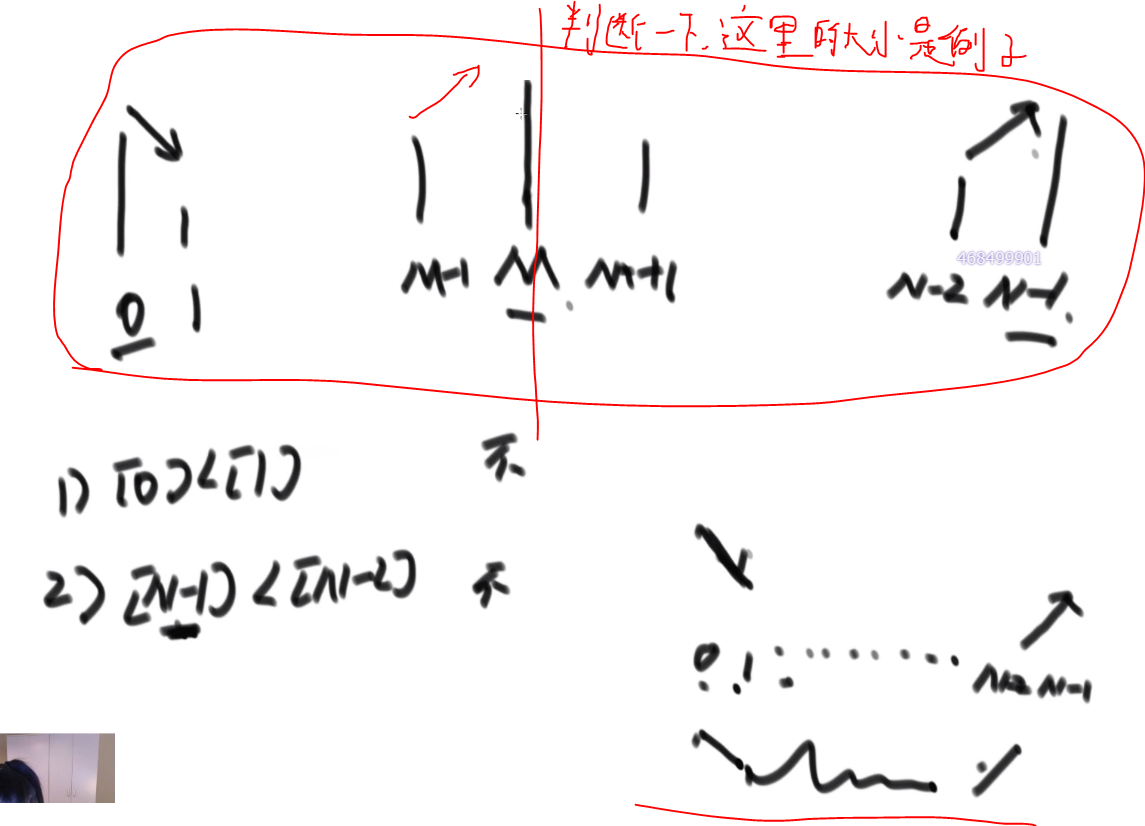 判断一下,这里的大小是例子
0 1 M-1 M M+1 N-2 N-1
468499901
1) [0]<[1] 不
2) [N-1]<[N-2] 不
0 1 N-2 N-1